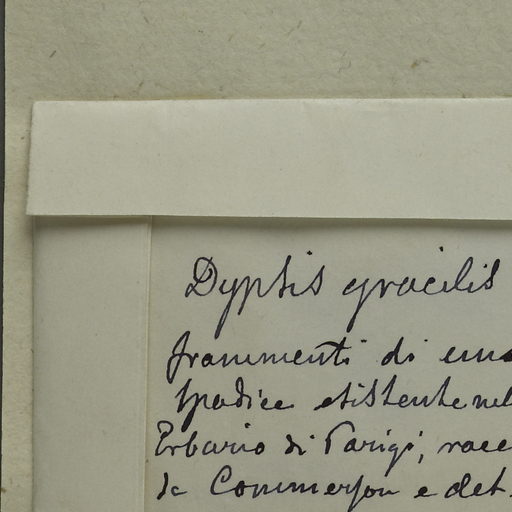 Dyptis gracilis
frammenti di uno
spadice esistente nel
Erbario di Parigi, racc
da Commerson e det.